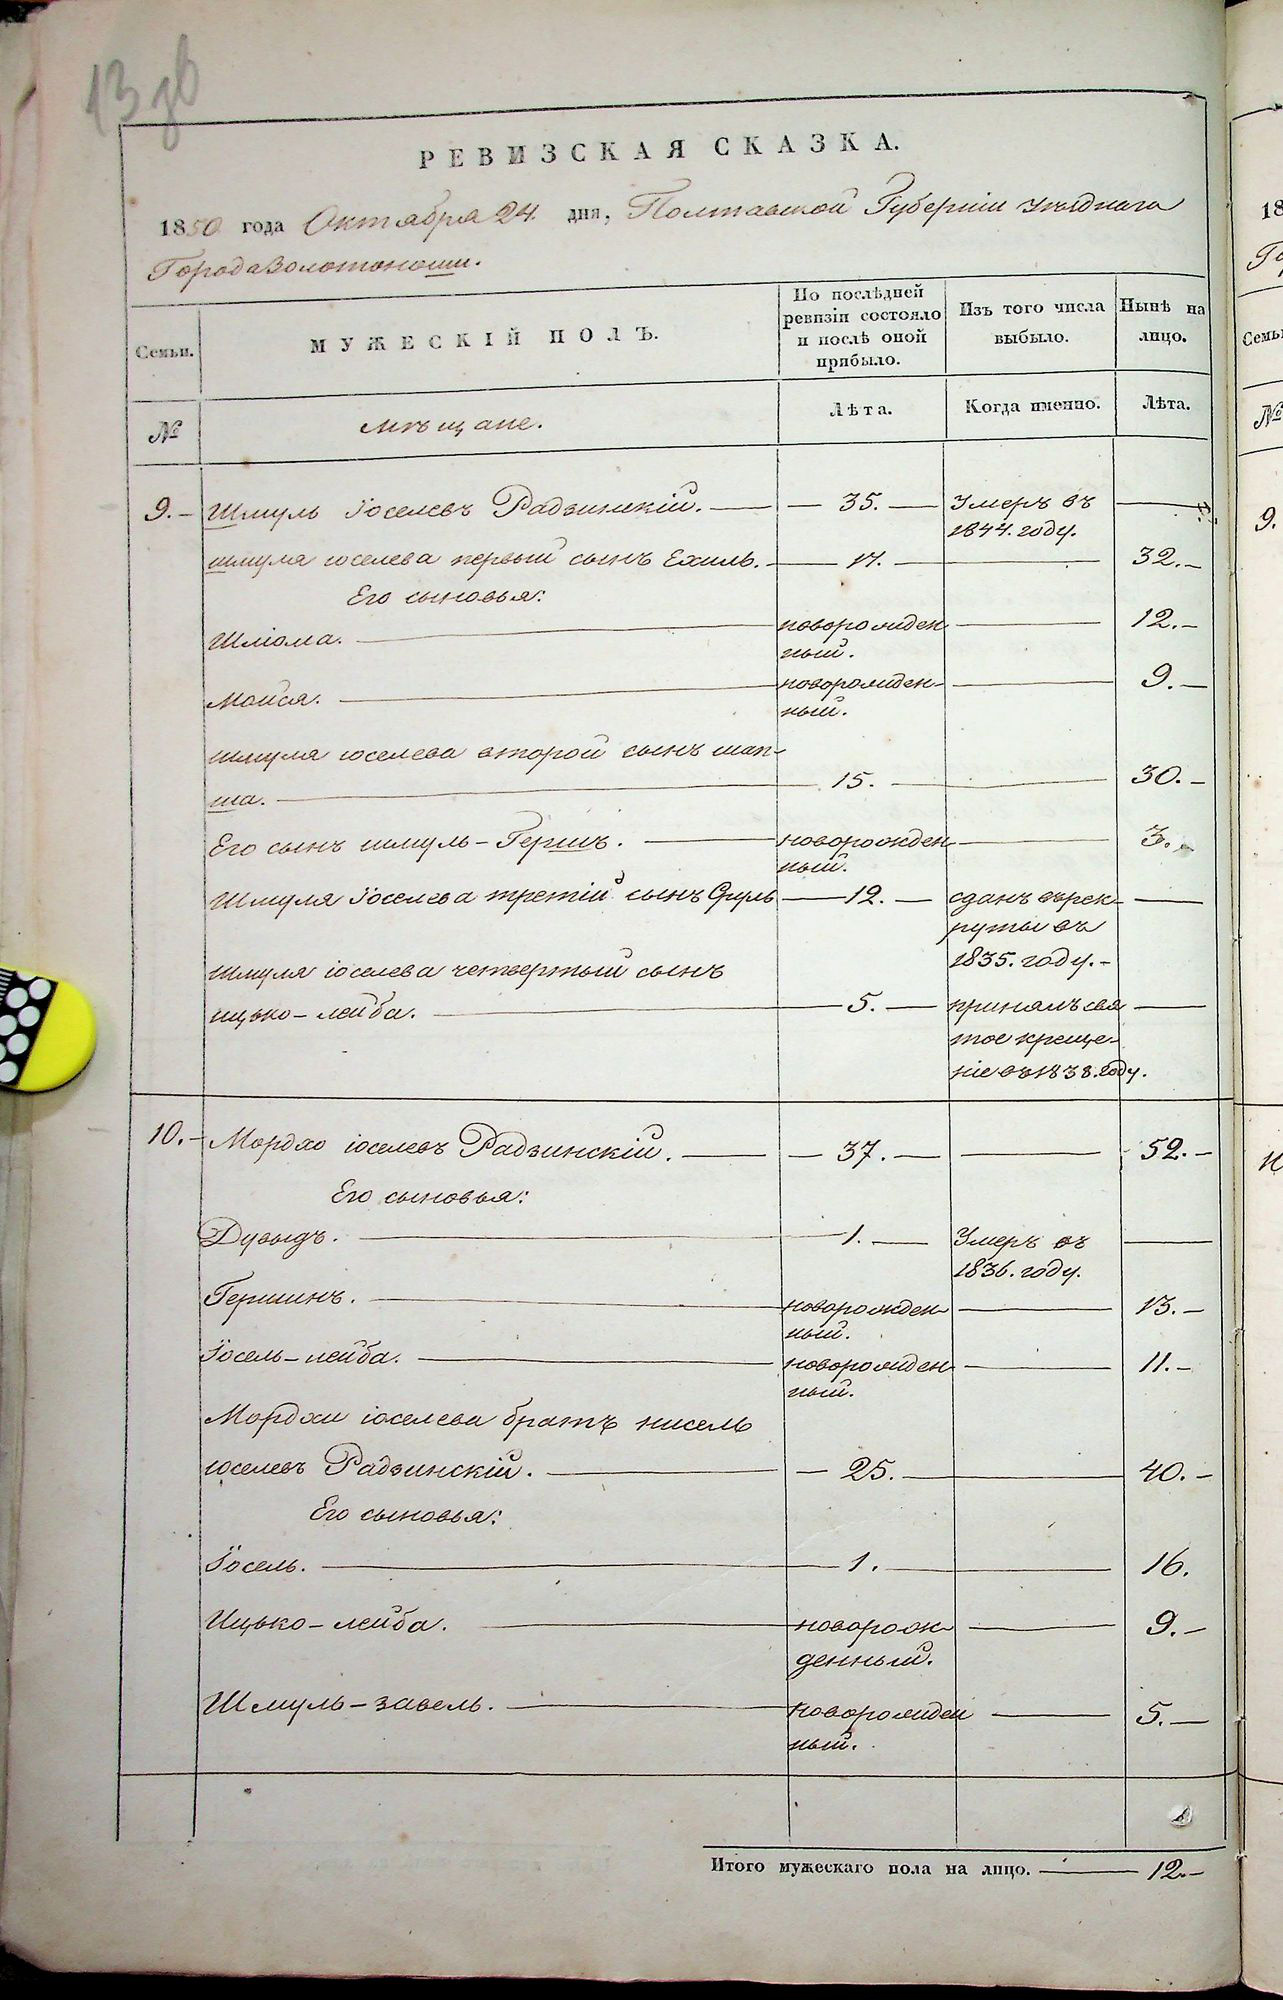 13 зв
РЕВИЗСКАЯ СКАЗКА.
1850 года Октября 24 дня, Полтавской Губерніи уѣзднаго
Города Золотоноши.
Семьи.
МУЖЕСКІЙ ПОЛЪ.
По послѣдней
ревизіи состояло
и послѣ оной
прибыло.
Изъ того числа
выбыло.
Нынѣ на
лицо.
№
мѣщане.
Лѣта.
Когда именно.
Лѣта.
9.- Шмуль Іоселевъ Радзинскій. — 35. — Умеръ въ
1844. году.
шмуля іоселева первый сынъ Ехиль. — 17. — 32.-
Его сыновья:
Шліома. — новорожден 12.-
ный.
Мойся. — новорожден- 9.-
ный.
шмуля іоселева второй сынъ шап-
ша. — 15. — 30.-
Его сынъ шмуль-Гершъ. — новорожден 3.-
ный.
Шмуля Іоселева третій сынъ Сруль — 12. — сданъ врек-
руты въ
1835. году.-
Шмуля іоселева четвертый сынъ
ицько-лейба. — 5. — принялъ свя
тое креще-
ніе въ 1838. году.
10.- Мордхо іоселевъ Радзинскій. — 37. — 52.-
Его сыновья:
Дувыдъ. — 1. — Умеръ въ
1836. году.
Гершинъ. — новорожден- 13.-
ный.
Іосель-лейба. — новорожден 11.-
ный.
Мордхи іоселева братъ нисель
іоселевъ Радзинскій. — 25. — 40.-
Его сыновья:
Іосель. — 1. — 16.
Ицько-лейба. — новорож- 9.-
денный.
Шмуль-завель. — новорожден 5.-
ный.
Итого мужескаго пола на лицо. — 12.-
18
№
9.